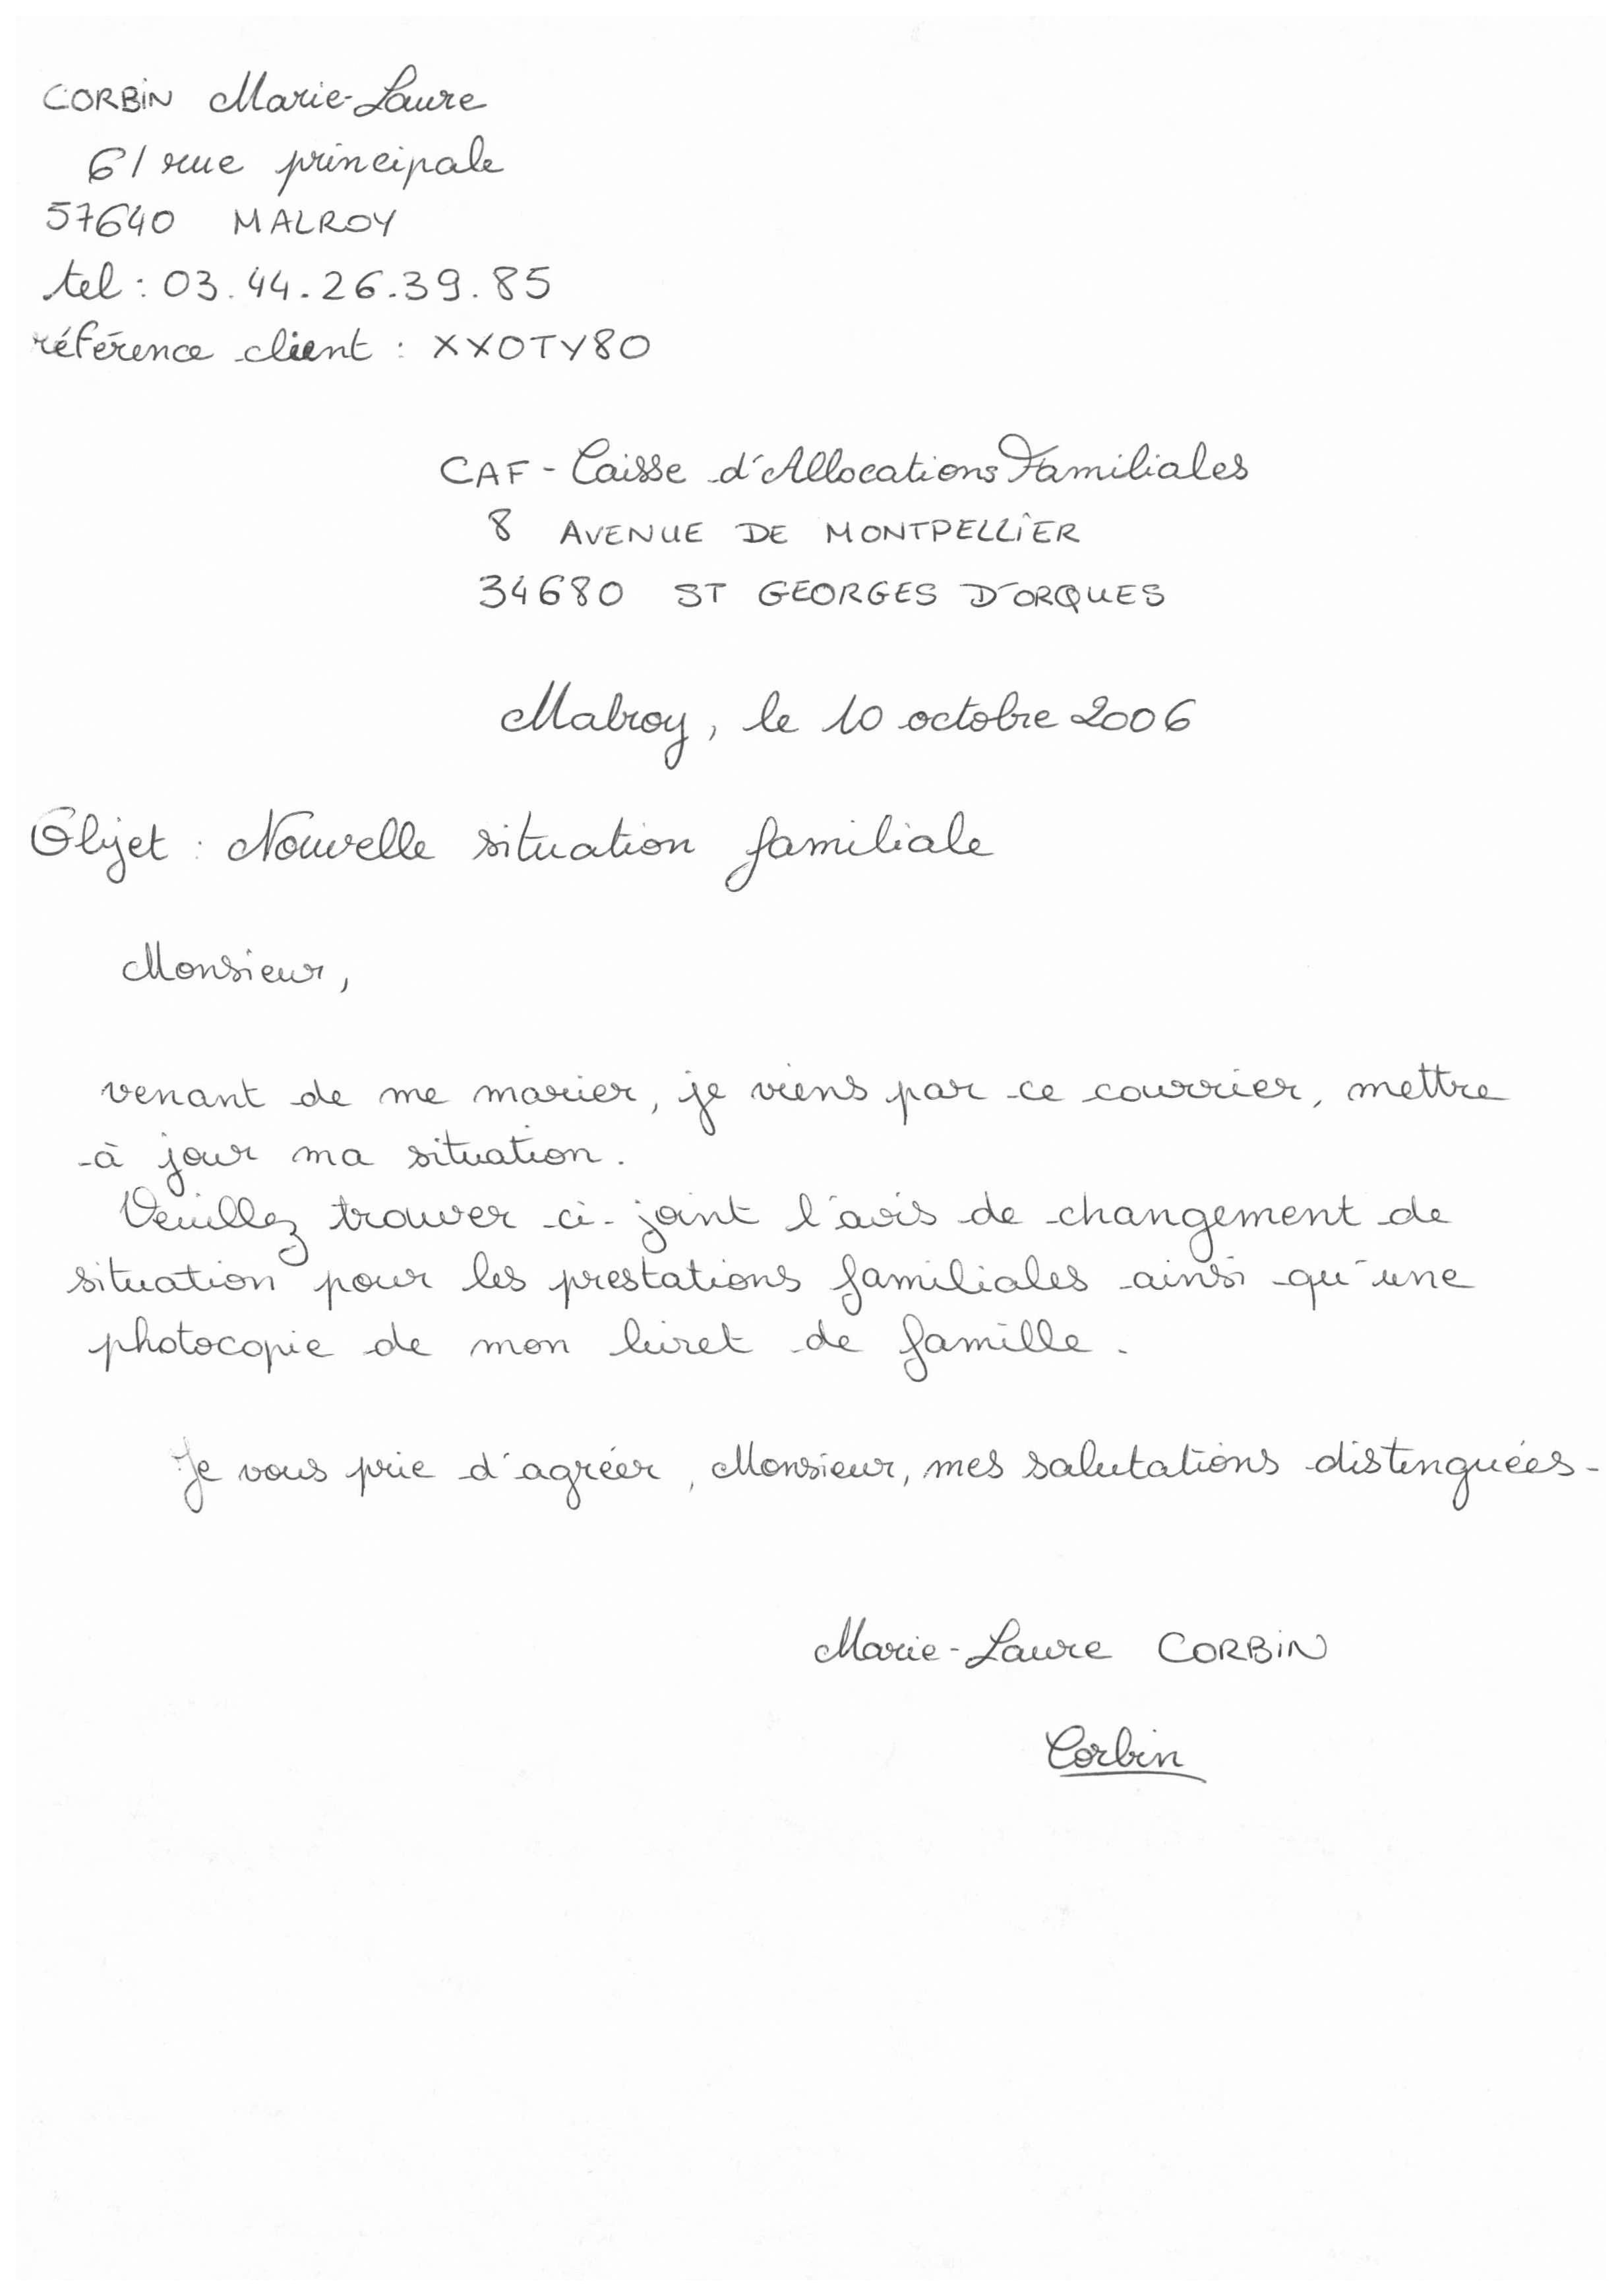 CORBIN Marie-Laure
61 rue principale
57640 MALROY
tel : 03.44.26.39.85
référence client : XXOTY80
CAF - Caisse d'Allocations Familiales
8 AVENUE DE MONTPELLIER
34680 ST GEORGES D'ORQUES
Malroy, le 10 octobre 2006
Objet : Nouvelle situation familiale
Monsieur,
venant de me marier, je viens par ce courrier, mettre
à jour ma situation.
Veuillez trouver ci-joint l'avis de changement de
situation pour les prestations familiales ainsi qu'une
photocopie de mon livret de famille.
Je vous prie d'agréer, Monsieur, mes salutations distinguées.
Marie-Laure CORBIN
Corbin